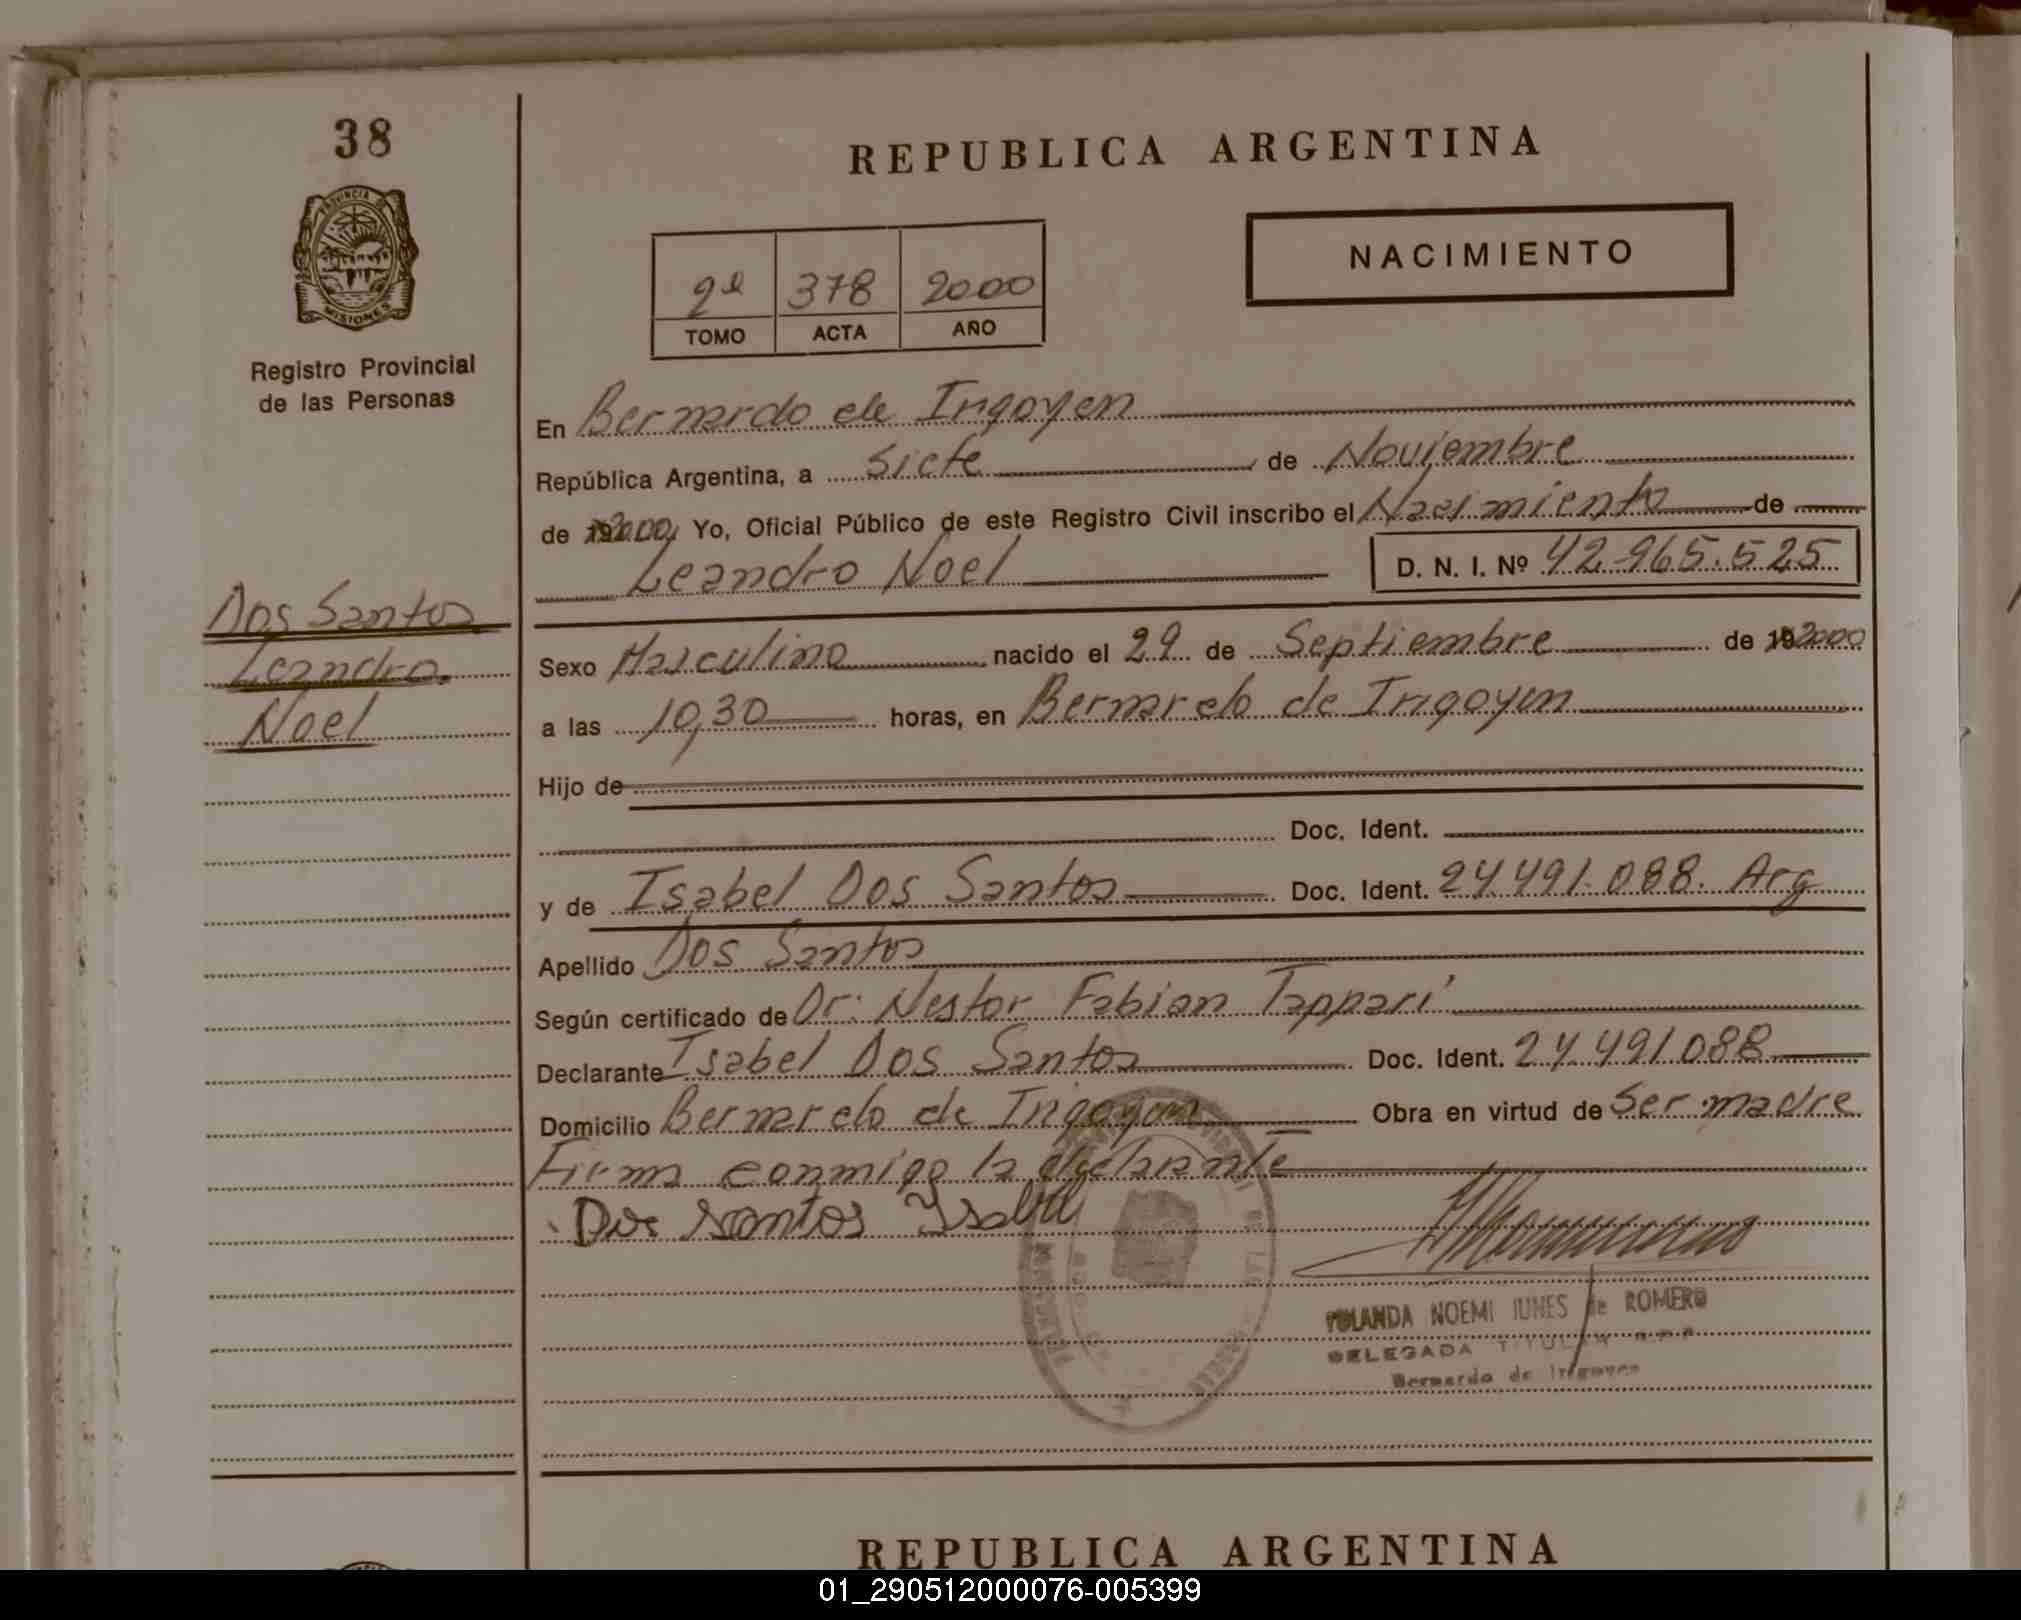 38
REPUBLICA ARGENTINA
PROVINCIA DE
MISIONES
Registro Provincial
de las Personas
NACIMIENTO
2º 378 2000
TOMO ACTA AÑO
En Bernardo de Irigoyen
República Argentina, a Siete de Noviembre
de 2000 Yo, Oficial Público de este Registro Civil inscribo el Nacimiento de
Leandro Noel D. N. I. Nº 42.965.525
Dos Santos
Leandro
Noel
Sexo Masculino nacido el 29 de Septiembre de 2000
a las 10,30 horas, en Bernardo de Irigoyen
Hijo de
Doc. Ident.
y de Isabel Dos Santos Doc. Ident. 24.491.088. Arg
Apellido Dos Santos
Según certificado de Dr: Nestor Fabian Tappari
Declarante Isabel Dos Santos Doc. Ident. 24.491.088
Domicilio Bernardo de Irigoyen Obra en virtud de Ser madre
Firma conmigo la declarante
Dos santos Ysabel
YOLANDA NOEMI IUNES de ROMERO
DELEGADA TITULAR R.P.P.
Bernardo de Irigoyen
REPUBLICA ARGENTINA
01_290512000076-005399